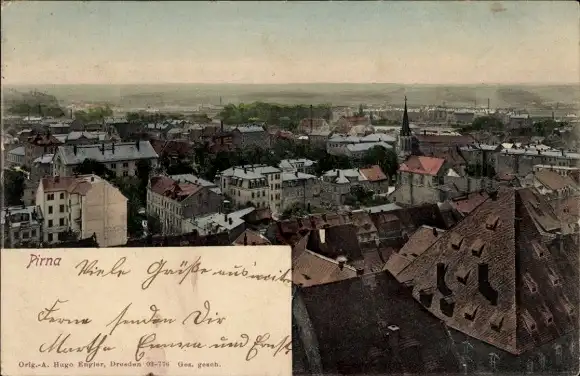 Pirna
Viele Grüße aus weiter
Ferne senden Dir
Marthe Emma und Ernst
Orig.-A. Hugo Engler, Dresden 03-776 Ges. gesch.